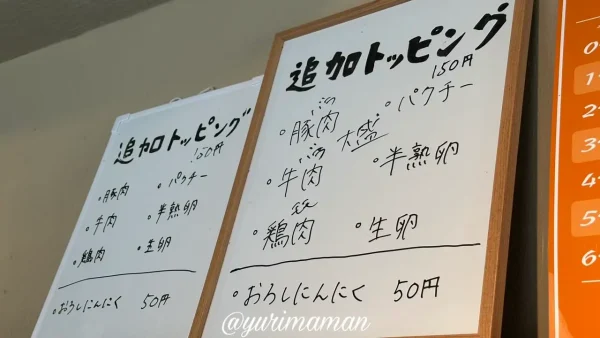 追加トッピング
150円
・豚肉 ・パクチー
・牛肉 ・半熟卵
・鶏肉 ・生卵
・おろしにんにく 50円
追加トッピング
150円
・豚肉 ・パクチー
大盛
・牛肉 ・半熟卵
・鶏肉 ・生卵
・おろしにんにく 50円
0
1
2
3
4
5
6
@yurimaman